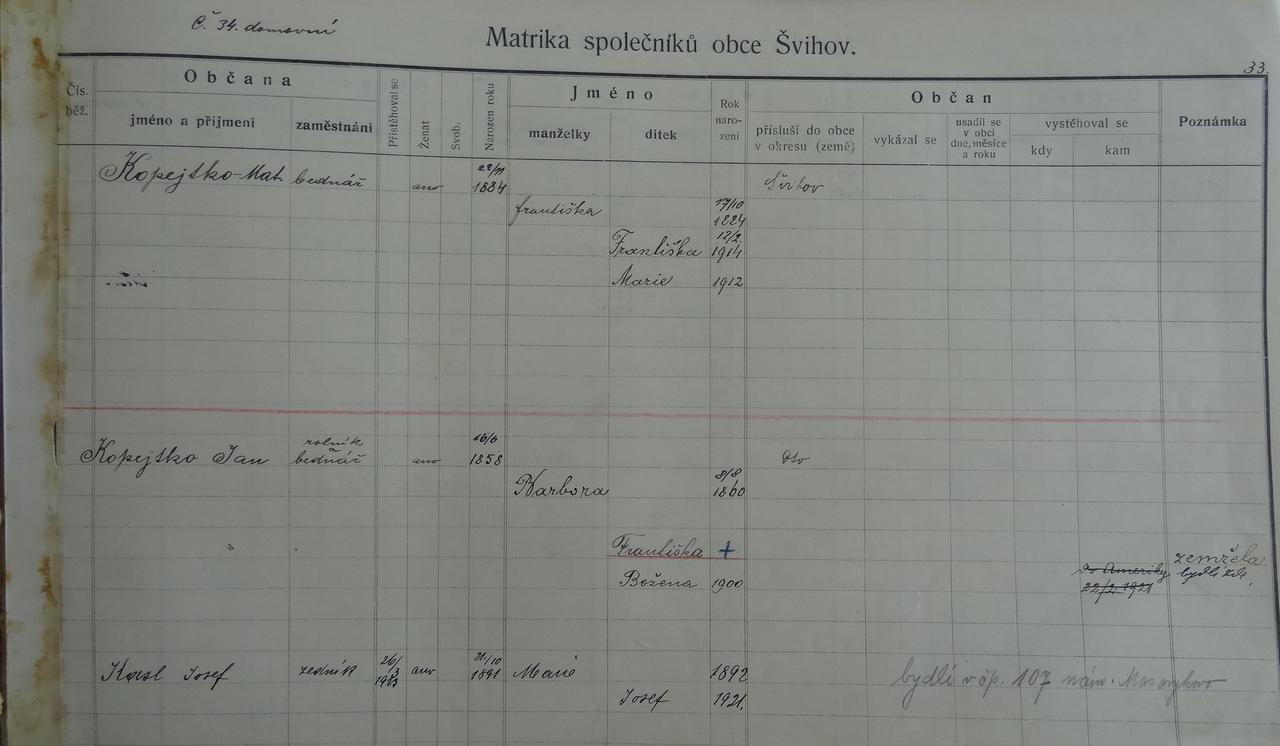 Č. 34. domovní
Matrika společníků obce Švihov.
33.
Čís. běž.
Občana
jméno a příjmení
zaměstnání
Přistěhoval se
Ženat
Svob.
Narozen roku
Jméno
manželky
dítek
Rok naro- zení
Občan
přísluší do obce v okresu (země)
vykázal se
usadil se v obci dne, měsíce a roku
vystěhoval se
kdy
kam
Poznámka
Kopejtko Mat. bednář ano 22/11 1884 Švihov
františka 17/10 1884
Františka 12/2. 1914
Marie 1912
rolník
Kopejtko Jan bednář ano 16/6 1858 Dto
Barbora 8/8 1860
Františka + zemřela
Božena 1900 Do Ameriky 22/2 1921 bydlí zde.
Kasl Josef zedník 26/3 1903 ano 21/10 1891 Marie 1892 bydlí v čp. 107 nám. Masarykovo
Josef 1921.